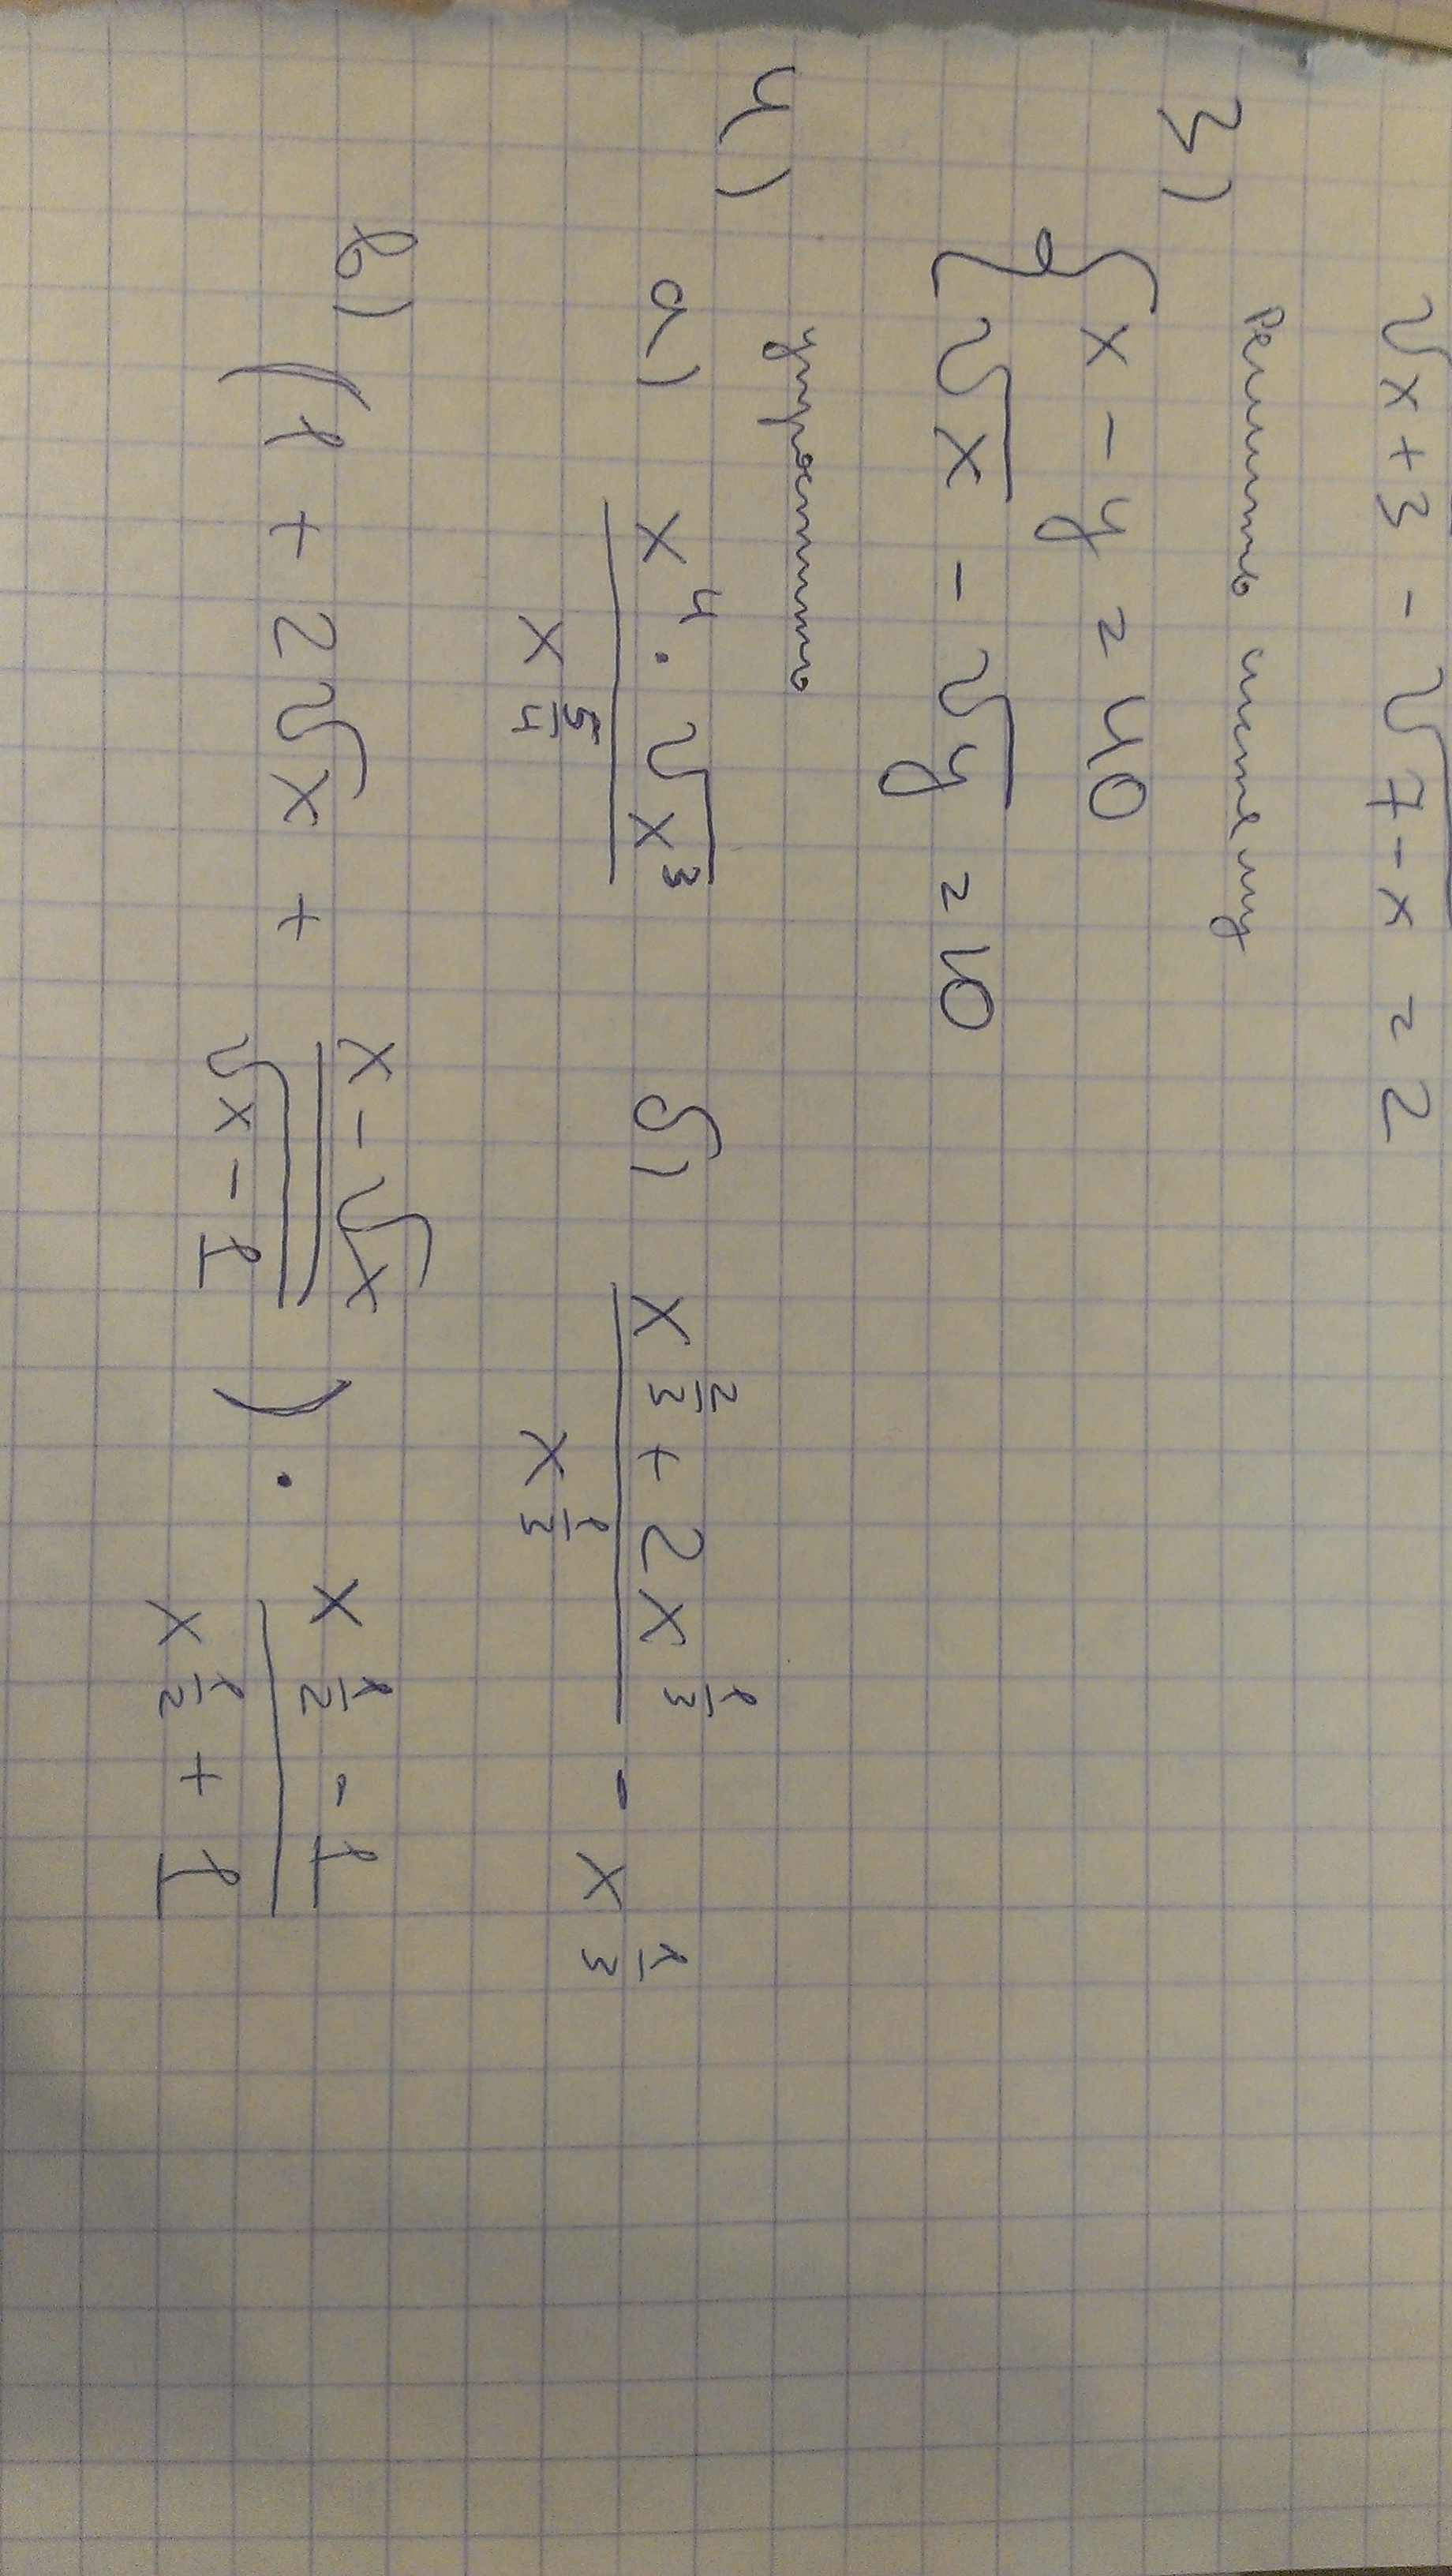 √x+3 - √7-x = 2
3) Решить систему
{ x - y = 40
√x - √y = 10
4) упростить
а) (x^4 · √x^3) / x^(5/4) б) (x^(2/3) + 2x^(1/3)) / x^(1/3) - x^(1/3)
в) (1 + 2√x + (x - √x) / (√x - 1)) · (x^(1/2) - 1) / (x^(1/2) + 1)